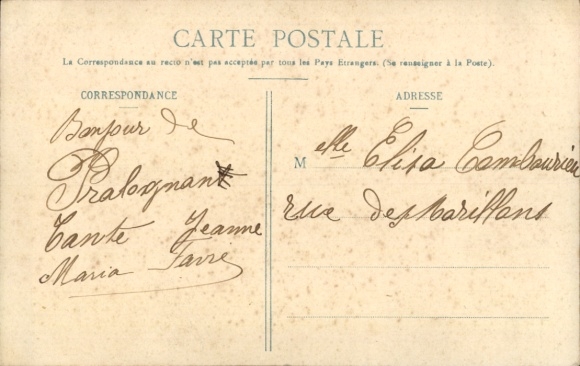 CARTE POSTALE
La Correspondance au recto n'est pas acceptée par tous les Pays Etrangers. (Se renseigner à la Poste).
CORRESPONDANCE
Bonjour de
Pralognan
Tante Jeanne
Maria Favre
ADRESSE
Melle Elisa Cambourieu
rue des Morillons